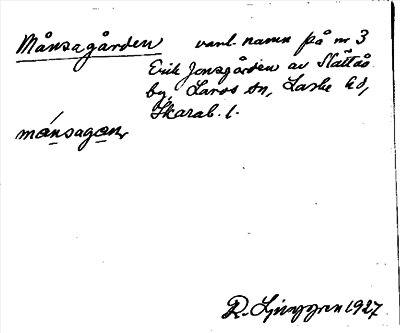 Månsagården vanl. namn på nr 3
Erik Jonsgården av Slättås
by, Larvs sn, Laske hd,
Skarab. l.
månsagan
R. Ljunggren 1927